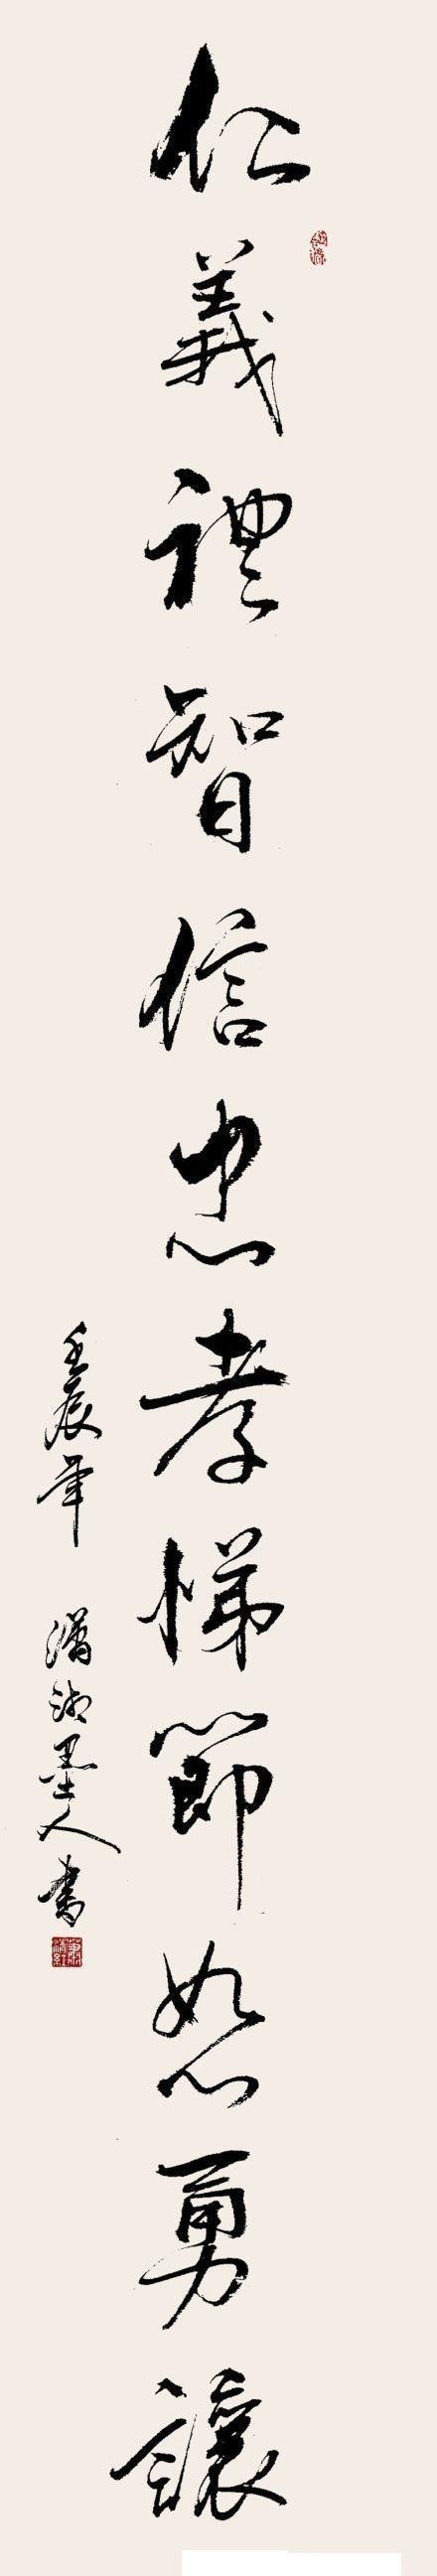 仁義禮智信忠孝悌節恕勇讓
壬辰年 瀟湘墨人書